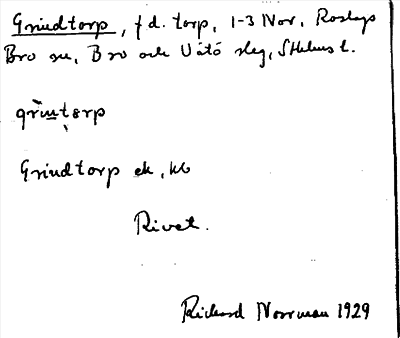 Grindtorp, f d. torp, 1-3 Nor, Roslags
Bro sn, Bro och Vätö slg, Sthlms l.
grintærp
Grindtorp ek, kb
Rivet.
Richard Norrman 1929